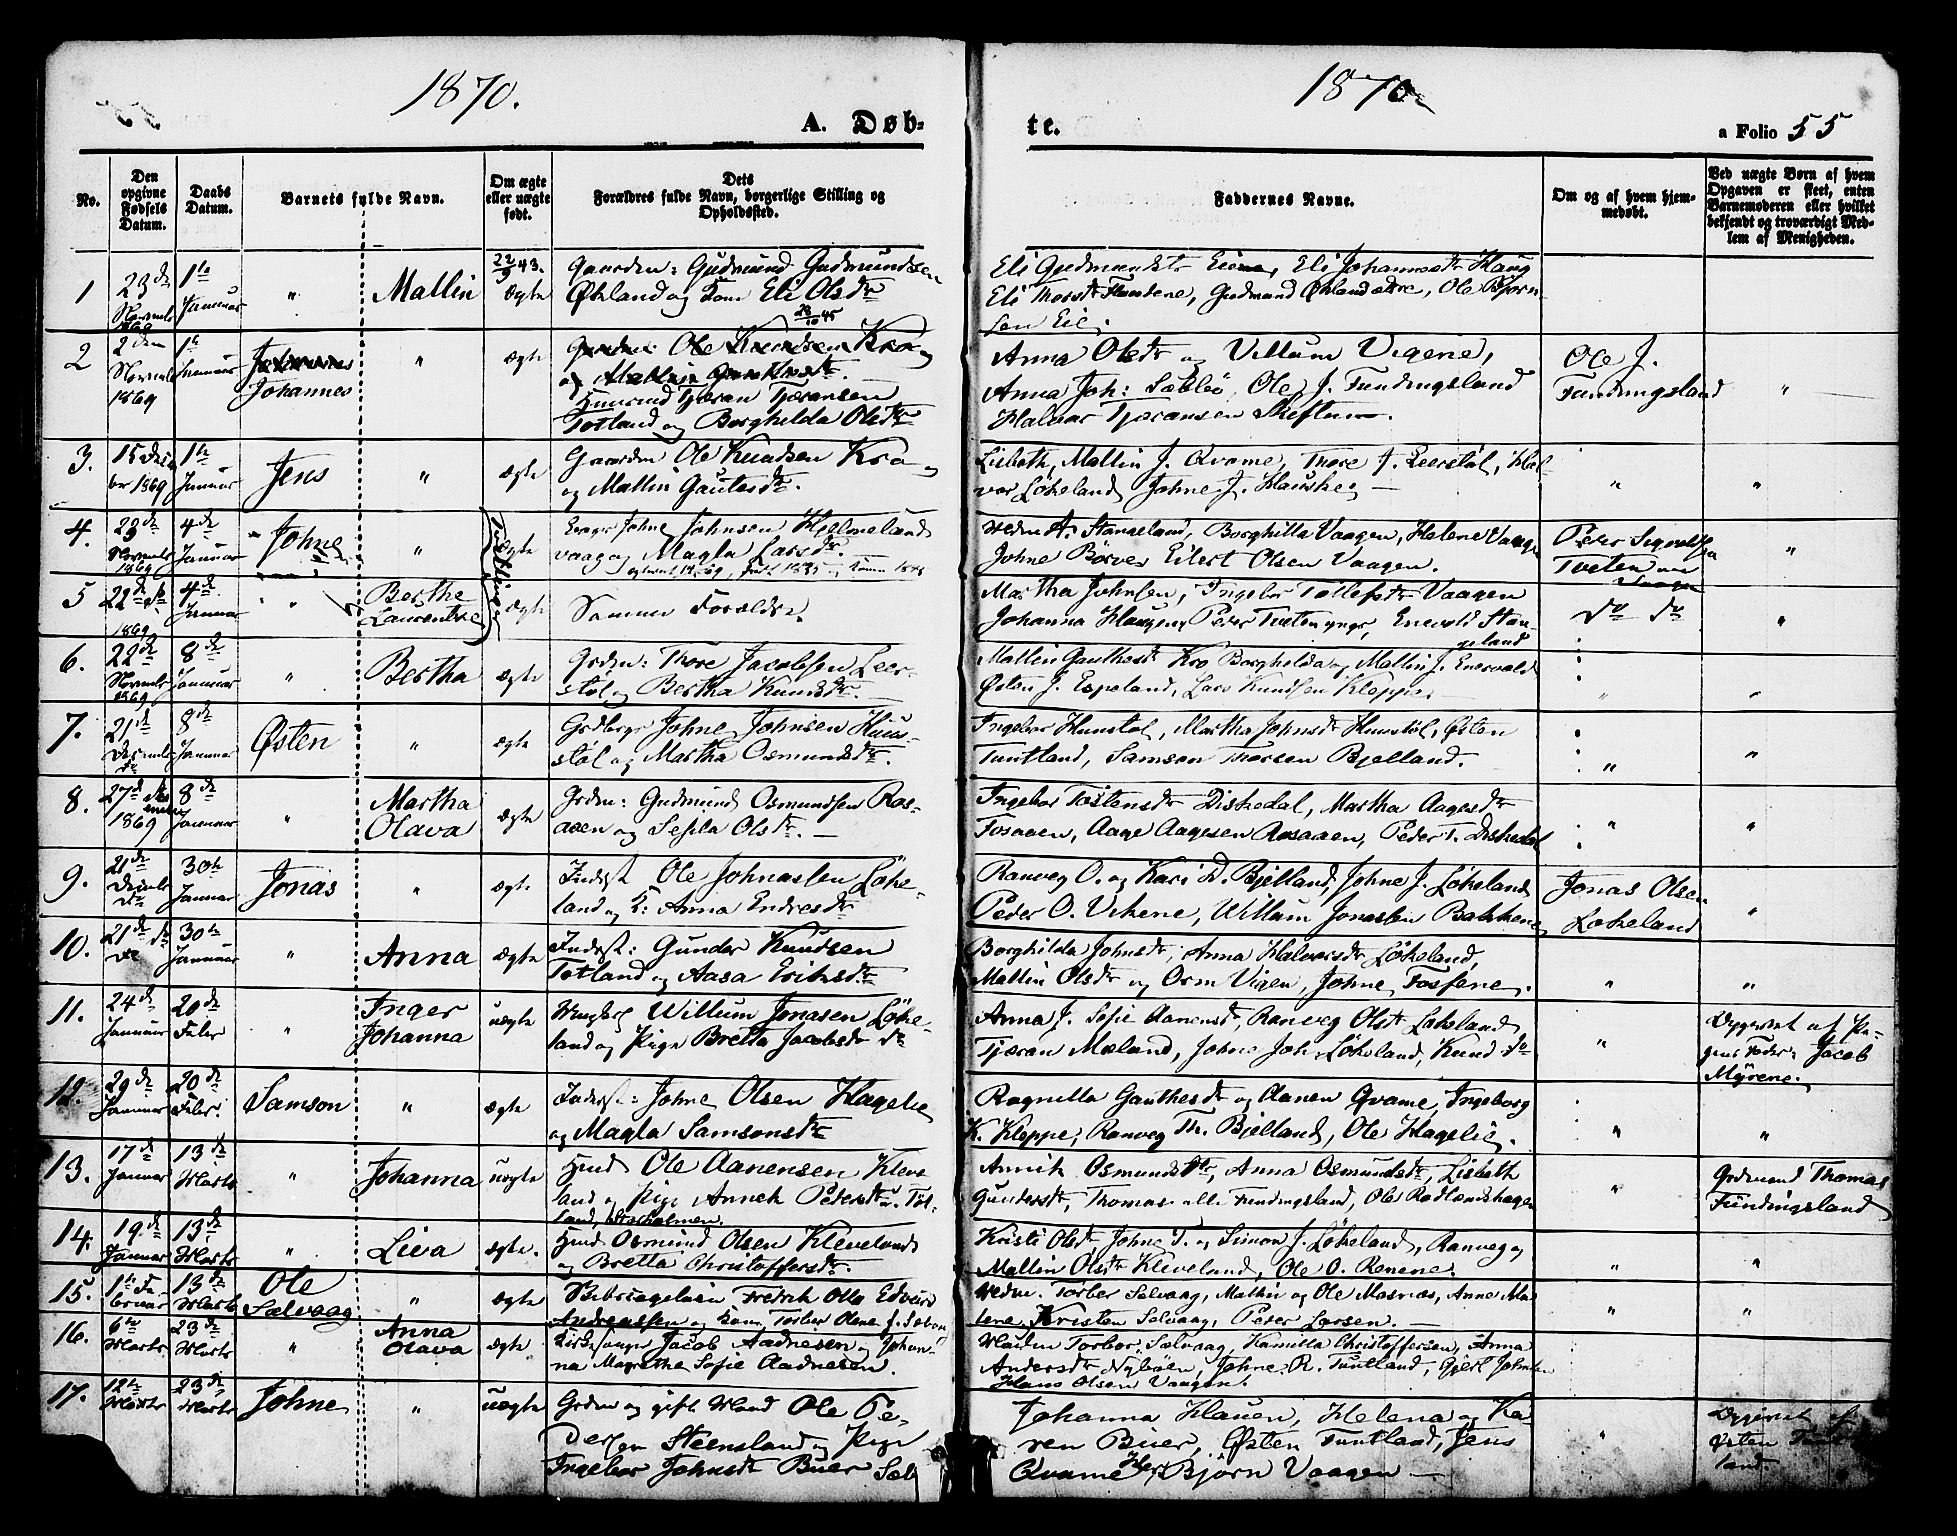 1870.
1870
A. Døb-
te.
a Folio 55
No.
Den opgivne Fødsels Datum.
Daabs Datum.
Barnets fulde Navn.
Om ægte eller uægte født.
Dets Forældres fulde Navn, borgerlige Stilling og Opholdssted.
Faddernes Navne.
Om og af hvem hjemmedøbt.
Ved uægte Børn af hvem Opgaven er skeet, enten Barnemoderen eller hvilket bekjendt og troværdigt Medlem af Menigheden.
1
23de Novembr 1869
1te Januar
"
Mallin
22/9 43.
Ægte
Gaarden: Gudmund Gudmundsen
Økland og Kone Eli Olsdtr
28/10 45
Eli Gudmundsdtr Eiene, Eli Johannesdtr Haug
Eli Thorsdtr, Gudmund Økland, Ole Bjørn-
sen Eie.
2
2den Novembr 1869
1te Januar
Johannes
Johannes
"
ægte
Gaarden: Ole Knudsen Kro
og Mallin Gautesdtr.
Tjæran Tjæransen
Totland og Borghilda Olsdtr
Anna Olsdtr og Villum Vigene,
Anna Joh: Sæbbø, Ole J. Fundingsland
Halvar Tjæransen Skeftun.
Ole J.
Fundingsland
"
3.
15 Decbr 1869
1te Januar
Jens
"
ægte
Gaarden Ole Knudsen Kro
og Mallin Gautesdtr.
Lisbeth, Mallin J. Qvame, Thore J. Leerstøl, Hal-
vor Løkeland, Johne J. Hauske
"
"
4.
23de Novembr 1869
4de Januar
Johne
"
Tvillinger
Ægte
Johne Johnsen Hjelmeland
vaag og Magla Larsdtr.
A. Stangeland, Borghilla Vaagen, Helene Vaage
Johne Børve, Eilert Olsen Vaagen.
Peder Sigvaldsen
Tveten
Vaagen
"
5
22de do 1869
4de Januar
"
Berthe
Laurentze
ægte
Samme Forældre.
Martha Johnsen, Ingebor Tollefsdtr Vaagen
Johanna Haugen, Peder Tveten yngr, Enevald Stan-
geland
do do
"
6.
22de Novembr 1869
8de Januar
"
Bertha
ægte
Grdm: Thore Jacobsen Leer-
støl og Bertha Knudsdtr.
Mallin Gauthesdtr Kro Borghilda og Mallin J. Enervald
Østen J. Espeland, Lars Knudsen Kleppe.
"
"
7.
21de Decembr do
8de Januar
Østen
"
ægte
Johne Johnsen Huus-
støl og Martha Osmundsdtr.
Ingebor Huustøl, Martha Johnsdtr Huustøl, Østen
Tuntland, Samson Thorsen Bjelland.
"
"
8.
27de December 1869
8de Januar
"
Martha
Olava
ægte
Grdm: Gudmund Osmundsen Ros-
aaen og Sesila Olsdtr.
Ingebor Tostensdtr Diskedal, Martha Aagesdtr
Fosaaen, Aage Aagesen Rosaaen, Peder T. Diskedal
"
"
9.
21de Decembr do
30te Januar
Jonas
"
ægte
Inderst Ole Johnassen Løke-
land og K: Anna Endresdtr
Ranveg O. og Kari D. Bjelland, Johne J. Løkeland
Peder O. Vikene, Willum Jonassen Bakkene
Jonas Olsen
Løkeland
"
10.
21de do
30te Januar
"
Anna
Ægte
Inderst: Gunder Knudsen
Totland og Aasa Eriksdtr
Borghilda Johnsdtr, Anna Halvorsdtr Løkeland,
Mallin Olsdtr og Orm Vigen, Johne Fosfene.
"
"
11.
24de Januar
20de Febr
"
Inger
Johanna
uægte
Ungkrl Willum Jonasen Løke-
land og Pige Bretta Jacobsdtr do
Anna J. Sofie Aanensdtr, Ranveg Olsdtr Løkeland
Tjæran Mæland, Johne Joh. Løkeland, Knud do
"
Opgivet af Pi-
gens Fader: Jacob
Myrene.
12.
29de Januar
20de Febr.
Samson
"
ægte
Inderst: Johne Olsen Hagelie
og Magla Samsonsdtr
Ragnilla Gauthesdtr og Aanen Qvame, Ingeborg
K. Kleppe, Ranveg Th. Bjelland, Ole Hagelie.
"
"
13.
17de Januar
13de Marts
"
Johanna
uægte
Ole Aanensen Kleve
land og Pige Annek Pedersdtr Tøt-
land, Østeholmen.
Annik Osmundsdtr, Anna Osmundsdtr, Lisbeth
Gundersdtr, Thomas alle Fundingsland, Ole Rødlandshagen
"
Grdmand Thomas
Fundingsland
14.
19de Januar
13de Marts
"
Liva
ægte.
Osmund Olsen Kleveland
og Bretta Christoffersdtr.
Kristi Olsdtr, Johne T. og Simon J. Løkeland, Ranveg og
Mallin Olsdtr Kleveland, Ole O. Renene.
"
"
15.
1te Februar
13de Marts
Ole
Sælvaag
"
ægte
Fredrik Otto Edvard
Andreassen og Kone Torbor Olene J. Sæbø
Torbor Sælvaag, Mallin og Ole Masnæs, Anne Ma-
lene, Kristen Sælvaag, Peder Larsen.
"
"
16.
6te Marts
23de Marts
"
Anna
Olava
ægte
Kirkesanger Jacob Aadnesen og Johan-
na Magrethe Sofie Aadnesen.
Torbor Sælvaag, Kamilla Christoffersen, Anna
Andersdtr Nybøen, Johne R. Tuntland, Gjert Johnsen
Hans Olsen Vaagen.
"
"
17.
12te Marts
23de Marts
Johne
"
uægte
Grdm og gift Mand Ole Pe-
dersen Steensland og Pige
Ingebor Johnsdtr Buer
Johanna Hauen, Helena og Ka-
ren Buer, Østen Tuntland, Jens
Qvame, Bjørn Vaagen
"
Opgivet af
Østen Tunt-
land.